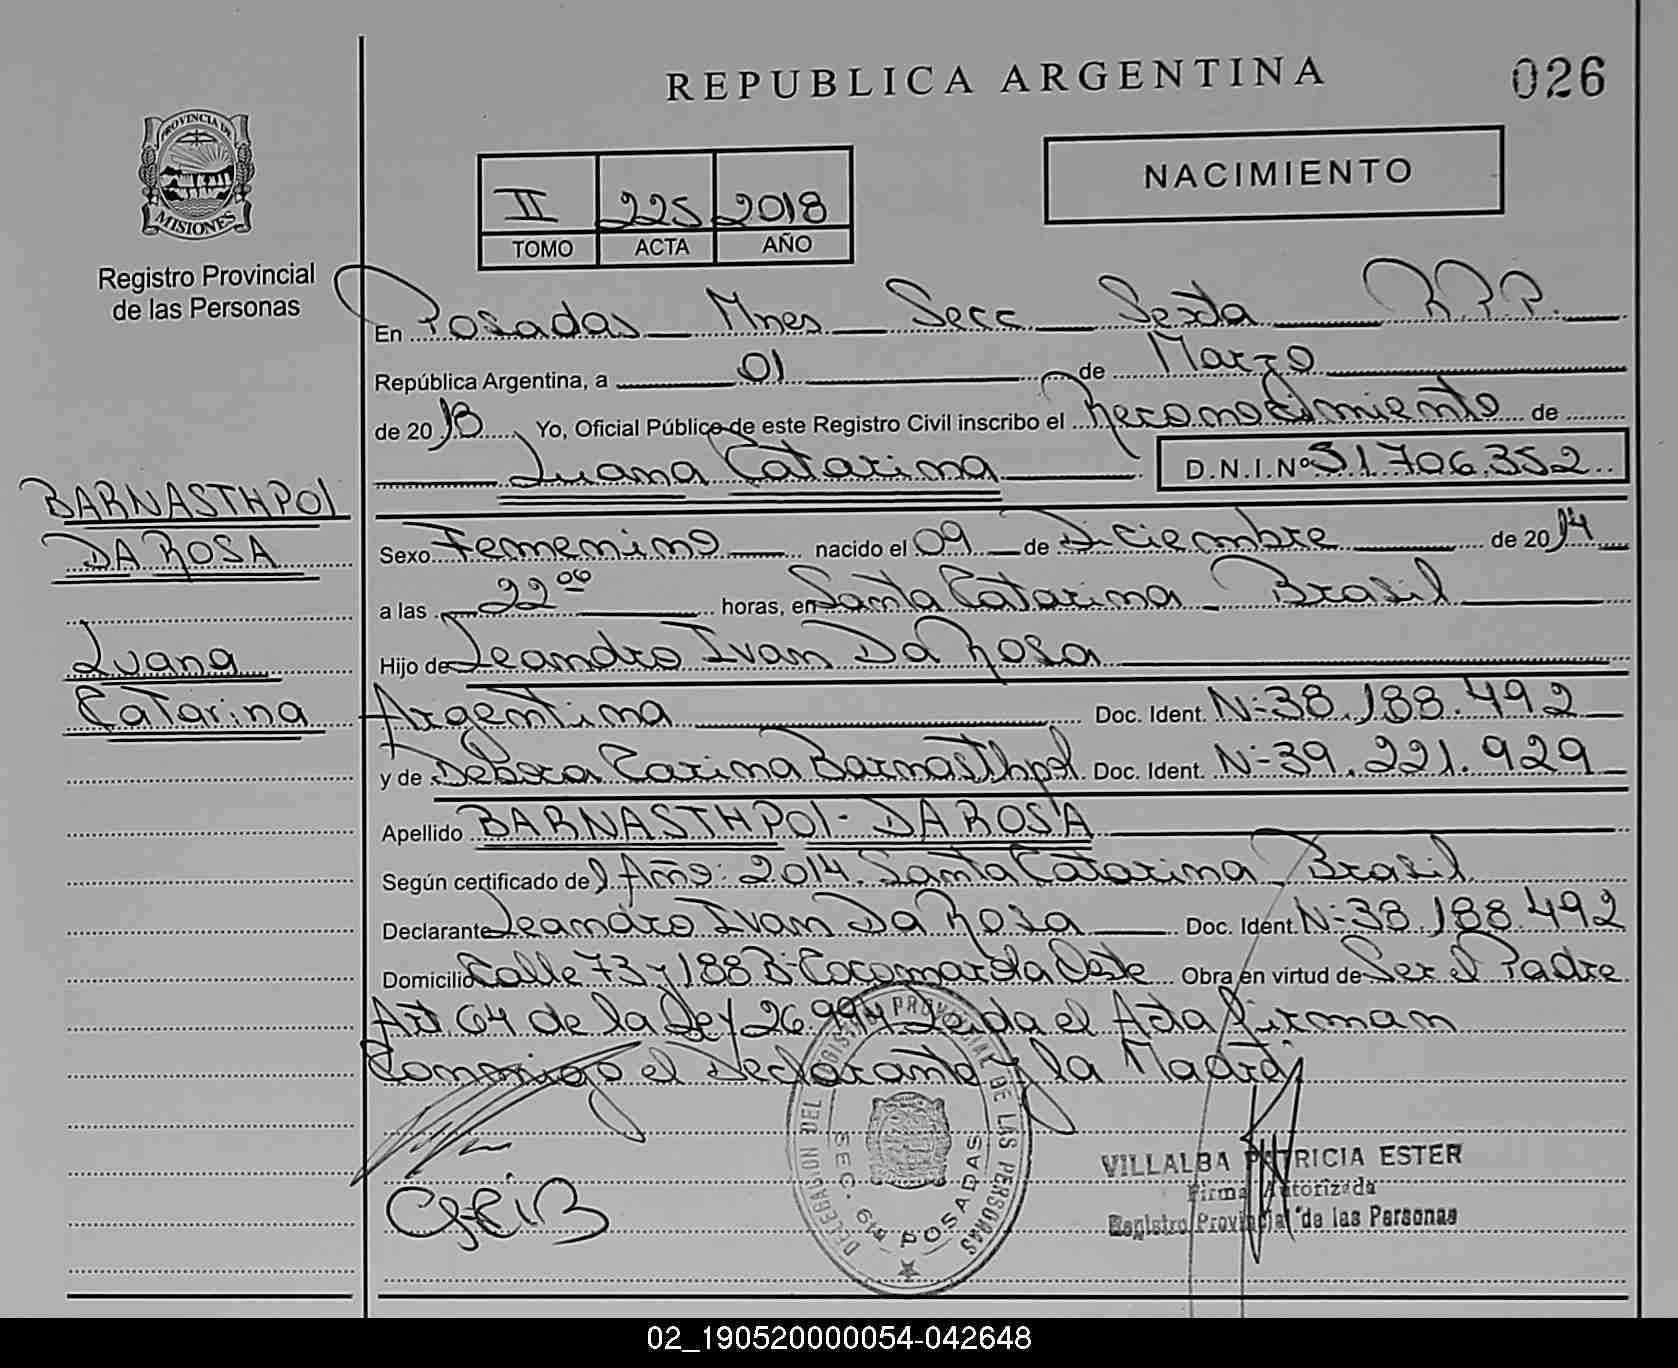 REPUBLICA ARGENTINA
026
PROVINCIA DE
MISIONES
Registro Provincial
de las Personas
NACIMIENTO
II 225 2018
TOMO ACTA AÑO
En Posadas Mnes Secc Sexta R.P.P.
República Argentina, a 01 de Marzo
de 2018 Yo, Oficial Público de este Registro Civil inscribo el Reconocimiento de
Luana Catarina D.N.I.Nº 51.706.352
BARNASTHPOl
DA ROSA
Luana
Catarina
Sexo Femenino nacido el 09 de Diciembre de 2014
a las 22 00 horas, en Santa Catarina Brasil
Hijo de Leandro Ivan Da Rosa
Argentina Doc. Ident. Nº 38.188.492
y de Debora Carina Barnasthpol Doc. Ident. Nº 39.221.929
Apellido BARNASTHPOl - DA ROSA
Según certificado del Año: 2014. Santa Catarina Brasil
Declarante Leandro Ivan Da Rosa Doc. Ident. Nº 38.188.492
Domicilio Calle 73 y 188 B- Cocomarola Oeste Obra en virtud de Ser el Padre
Art 64 de la Ley 26.994 Leida el Acta firman
Conmigo el Declarante y la Madre
DELEGACION DEL REGISTRO PROVINCIAL DE LAS PERSONAS
SEC. 6ta POSADAS
VILLALBA PATRICIA ESTER
Firma Autorizada
Registro Provincial de las Personas
02_190520000054-042648